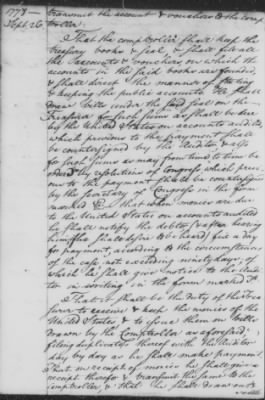 1778 —
Sept. 26.
transmit the account & vouchers to the comp
troller.
That the comptroller shall keep the
treasury books & seal, & shall file all
the accounts & vouchers on which the
accounts in the said books are founded,
& shall direct the manner of stating
& keeping the public accounts. He shall
draw bills under the said seal on the
Treasurer for such sums as shall be due
by the United States on accounts audited,
which previous to the payment shall
be countersigned by the Auditor & also
for such sums as may from time to time be
ordered by resolutions of Congress which previ
ous to the payment shall be countersigned
by the Secretary of Congress in the form
marked that when monies are due
to the United States on accounts audited
he shall notify the debtor & after hearing
him if he shall desire to be heard fix a day
for payment according to the circumstances
of the case not exceeding ninety days, of
which he shall give notice to the Audi
tor in writing in the form marked
That it shall be the duty of the trea
surer to receive & keep the monies of the
United States & to issue them on bills
drawn by the Comptroller as aforesaid,
filing duplicates thereof with the Auditor
day by day as he shall make payment.
That on receipt of monies he shall give a
receipt therefor & transmit the same to the
comptroller & that he shall draw out